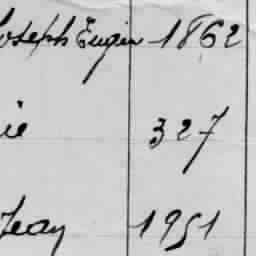 Joseph Eugin 1862
ie 327
Jean 1951